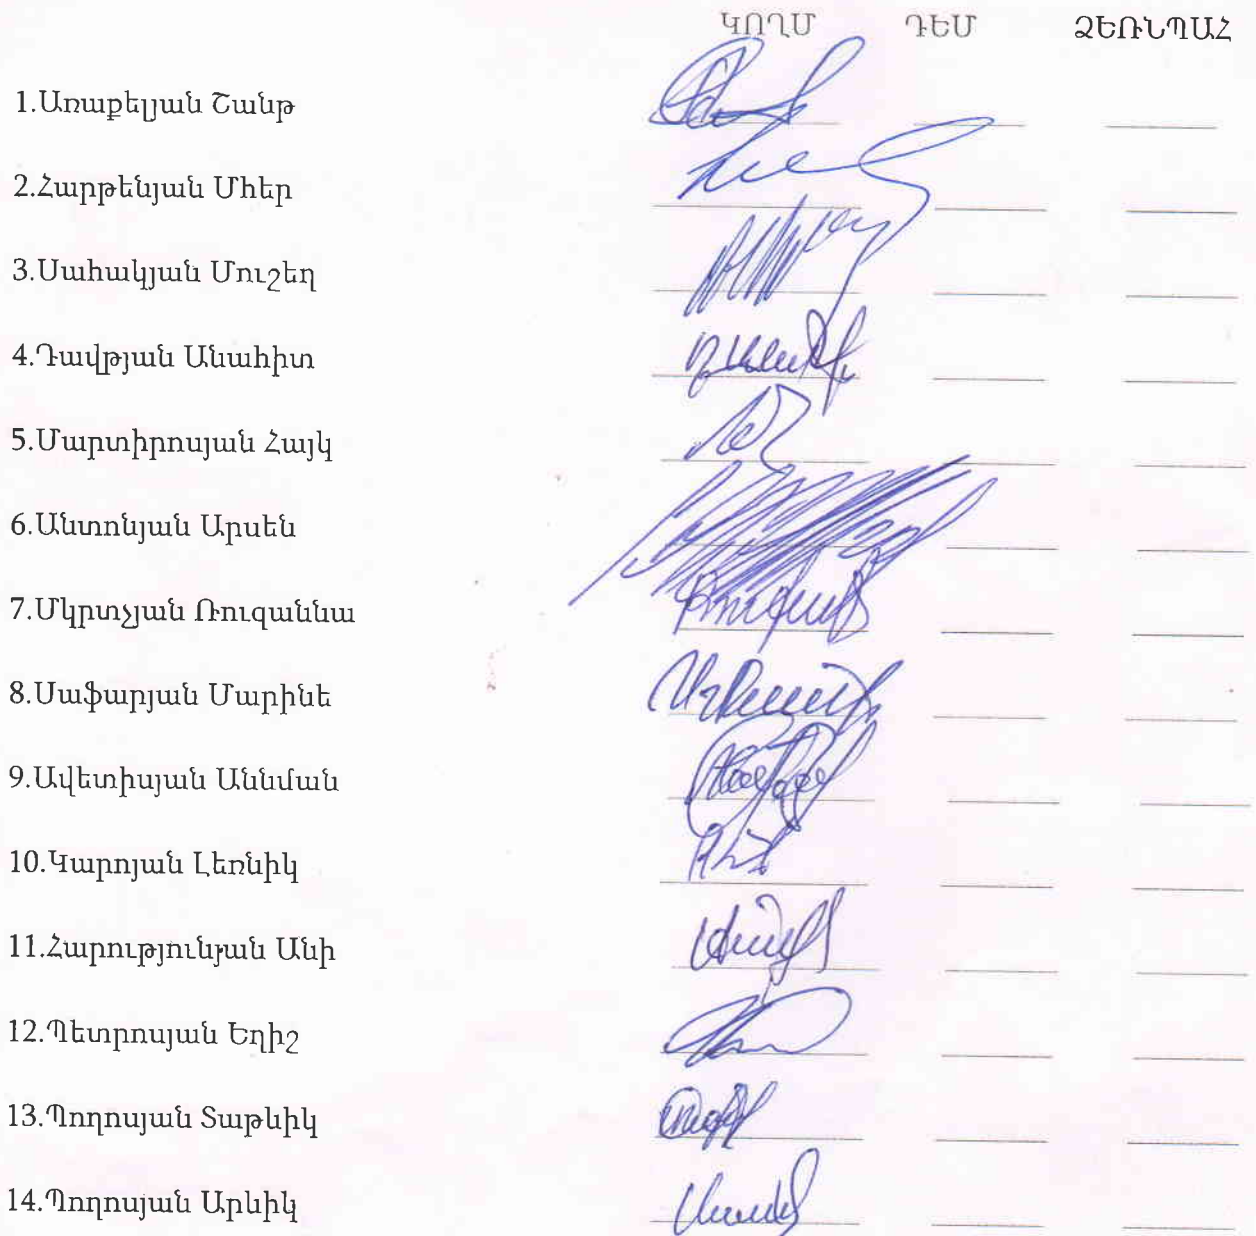 ԿՈՂՄ ԴԵՄ ՁԵՌՆՊԱՀ
1.Առաքելյան Շանթ
2.Հարթենյան Մհեր
3.Սահակյան Մուշեղ
4.Դավթյան Անահիտ
5.Մարտիրոսյան Հայկ
6.Անտոնյան Արսեն
7.Մկրտչյան Ռուզաննա
8.Սաֆարյան Մարինե
9.Ավետիսյան Աննման
10.Կարոյան Լեռնիկ
11.Հարությունյան Անի
12.Պետրոսյան Եղիշ
13.Պողոսյան Տաթևիկ
14.Պողոսյան Արևիկ